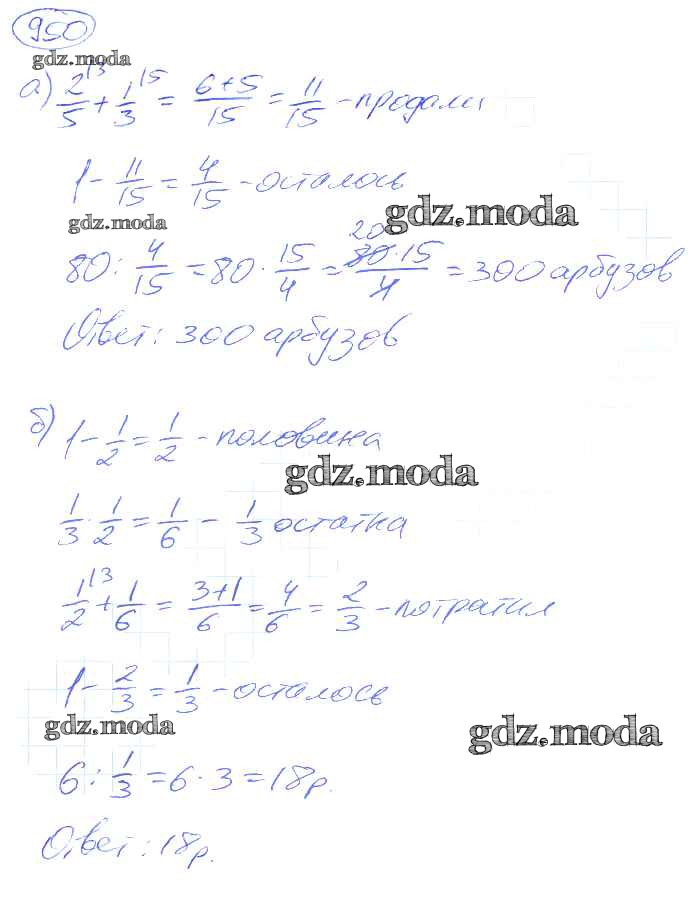 950
gdz.moda
а) 2/5 |3 + 1/3 |5 = (6+5)/15 = 11/15 - продали
1 - 11/15 = 4/15 - осталось
gdz.moda
gdz.moda
80 : 4/15 = 80 · 15/4 = (80 20 · 15)/4 = 300 арбузов
Ответ: 300 арбузов
б) 1 - 1/2 = 1/2 - половина
gdz.moda
1/3 · 1/2 = 1/6 - 1/3 остатка
1/2 |3 + 1/6 = (3+1)/6 = 4/6 = 2/3 - потратил
1 - 2/3 = 1/3 - осталось
gdz.moda
gdz.moda
6 : 1/3 = 6 · 3 = 18р.
Ответ: 18р.